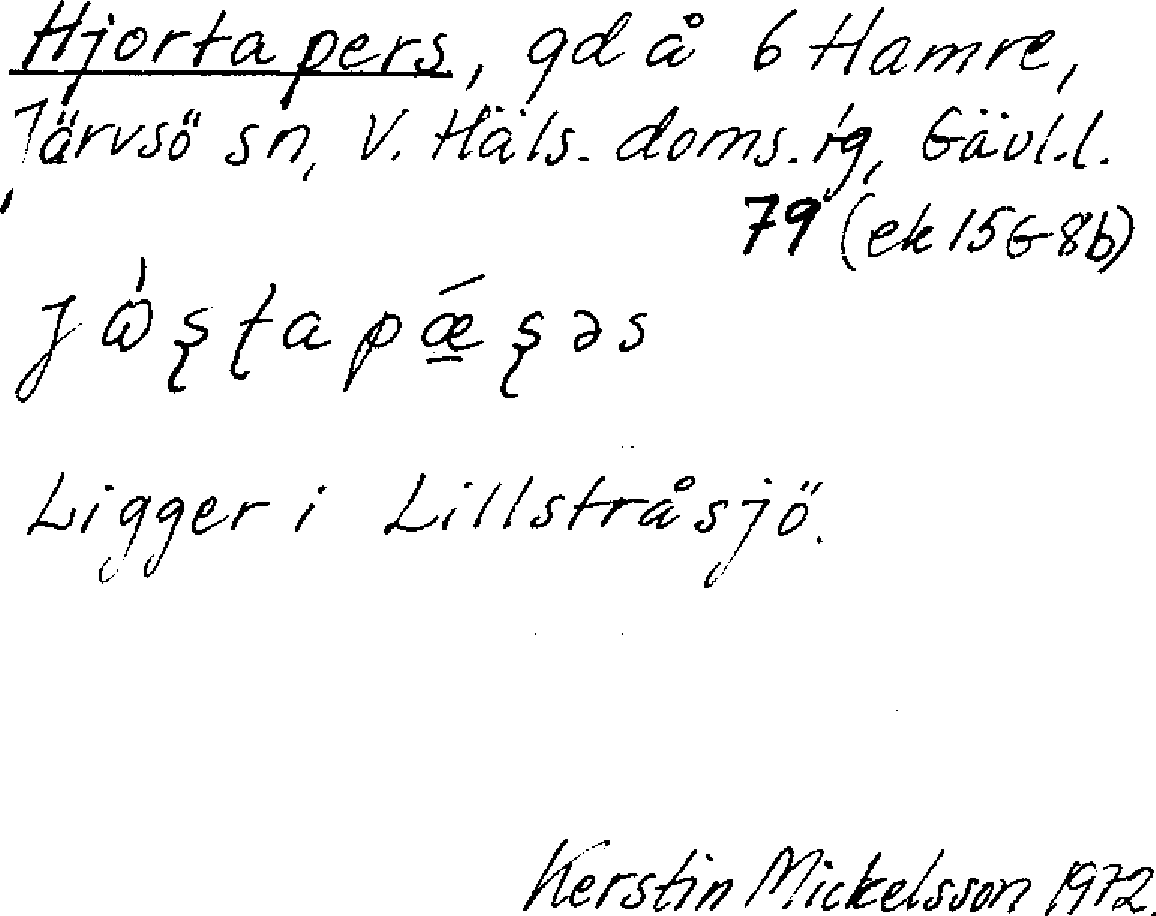 Hjortapers, gd å 6 Hamre,
Järvsö sn, V. Häls. doms.-rg, Gävl.l.
79 (ek 15G8b)
Ligger i Lillstråsjö.
Kerstin Mickelsson 1972.